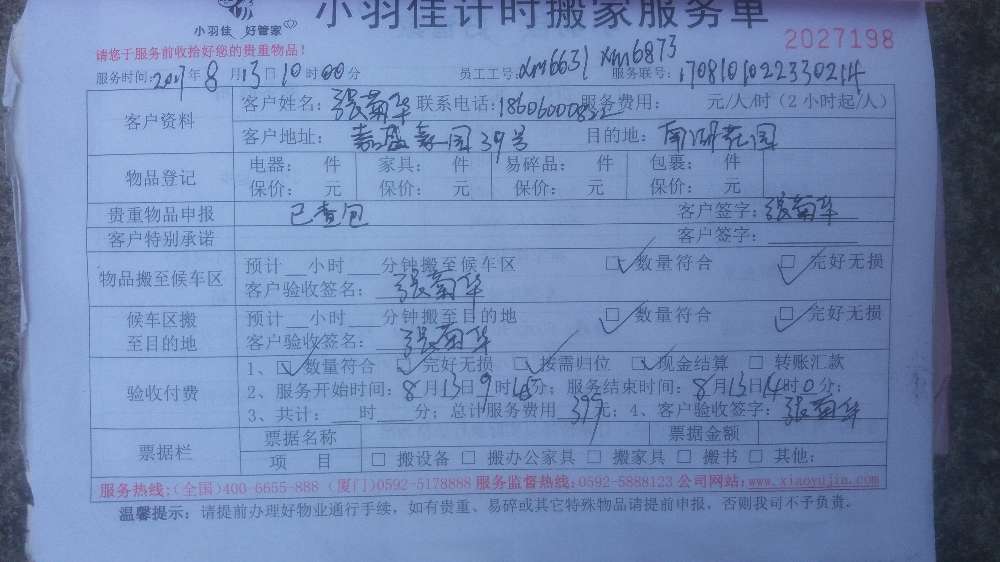 小羽佳计时搬家服务单
小羽佳 好管家
2027198
请您于服务前收拾好您的贵重物品!
服务时间:2017年8月13日10时00分 员工工号:xm6631 xm6873 服务联号:1708101022330214
客户资料 客户姓名:張菊华 联系电话:18606000822 服务费用: 元/人/时(2小时起/人)
客户地址: 嘉盛豪园39号 目的地: 南湖花园
物品登记 电器: 件 家具: 件 易碎品: 件 包裹: 件
保价: 元 保价: 元 保价: 元 保价: 元
贵重物品申报 已查包 客户签字:張菊华
客户特别承诺 客户签字:
物品搬至候车区 预计__小时___分钟搬至候车区 □ 数量符合 □ 完好无损
客户验收签名: 張菊华
候车区搬至目的地 预计__小时___分钟搬至目的地 □ 数量符合 □ 完好无损
客户验收签名: 張菊华
验收付费 1、□ 数量符合 □ 完好无损 □ 按需归位 □ 现金结算 □ 转账汇款
2、服务开始时间:8月13日9时45分;服务结束时间:8月13日14时0分;
3、共计:___时___分;总计服务费用 395元;4、客户验收签字:張菊华
票据栏 票据名称 票据金额
项 目 □ 搬设备 □ 搬办公家具 □ 搬家具 □ 搬书 □ 其他:
服务热线:(全国)400-6655-888 (厦门)0592-5178888 服务监督热线:0592-5888123 公司网站:www.xiaoyujia.com
温馨提示:请提前办理好物业通行手续,如有贵重、易碎或其它特殊物品请提前申报,否则我司不予负责.